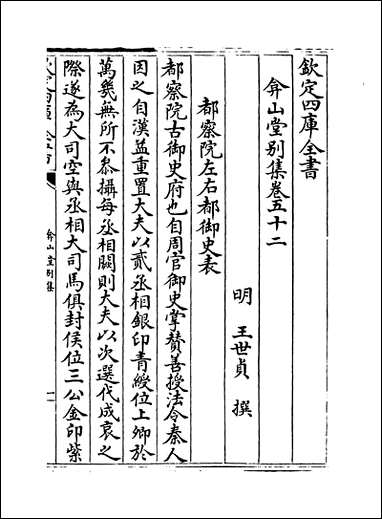 欽定四庫全書
弇山堂别集卷五十二
明 王世貞 撰
都察院左右都御史表
都察院古御史府也自周官御史掌贊善授法令秦人
因之自漢益重置大夫以貳丞相銀印青綬位上卿於
萬幾無所不叅攝每丞相闕則大夫以次選代成哀之
際遂為大司空與丞相大司馬俱封侯位三公金印紫
弇山堂别集